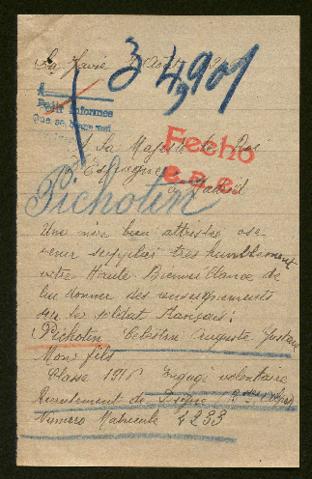 34,907
A
Pedir informes
Fecho
A Sa Majesté le Roi
d'Espagne
Madrid
Pichotin
Une mère bien attristée ose
venir supplier très humblement
votre Haute Bienveillance de
lui donner des renseignements
sur le soldat français:
Pichotin Célestin Auguste Gustave
Mon fils
Classe 1916 Engagé volontaire
Recrutement de
Numéro Matricule 4233